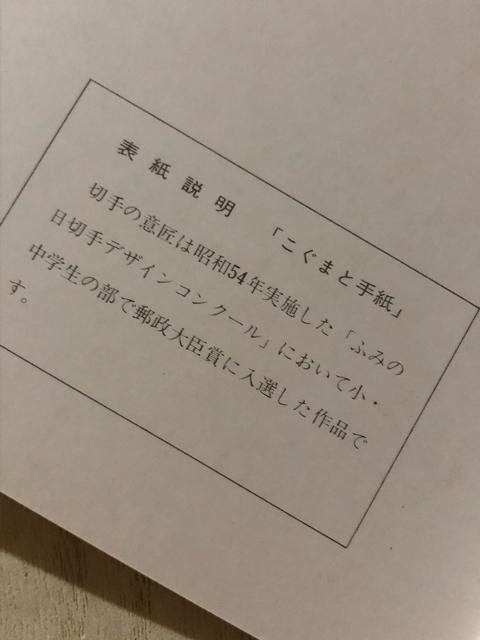 表紙説明 「こぐまと手紙」
切手の意匠は昭和54年実施した「ふみの
日切手デザインコンクール」において小・
中学生の部で郵政大臣賞に入選した作品で
す。